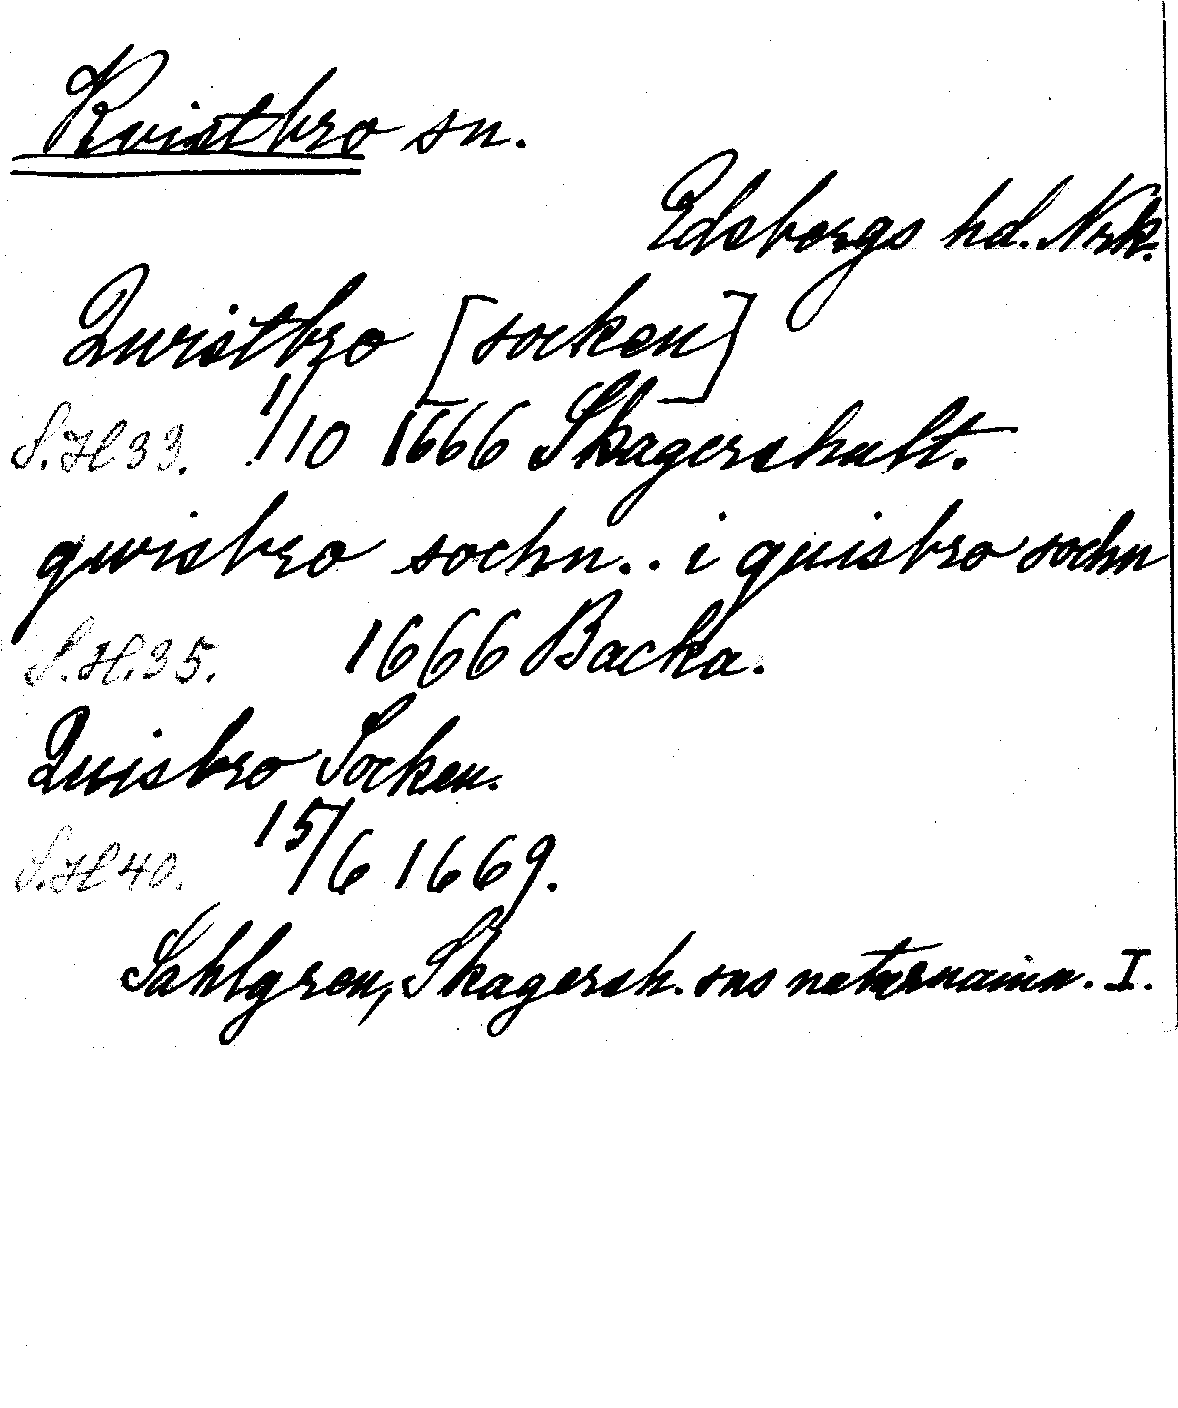 Kvistbro sn.
Edsbergs hd. Nrk.
Quristbro [socken]
S.H 33. 1/10 1666 Skagershult.
qwisbro sochn.. i quisbro sochn
S.H.35. 1666 Backa.
Quisbro Socken.
S.H 40. 15/6 1669.
Sahlgren, Skagersh. sns naturnamn. I.